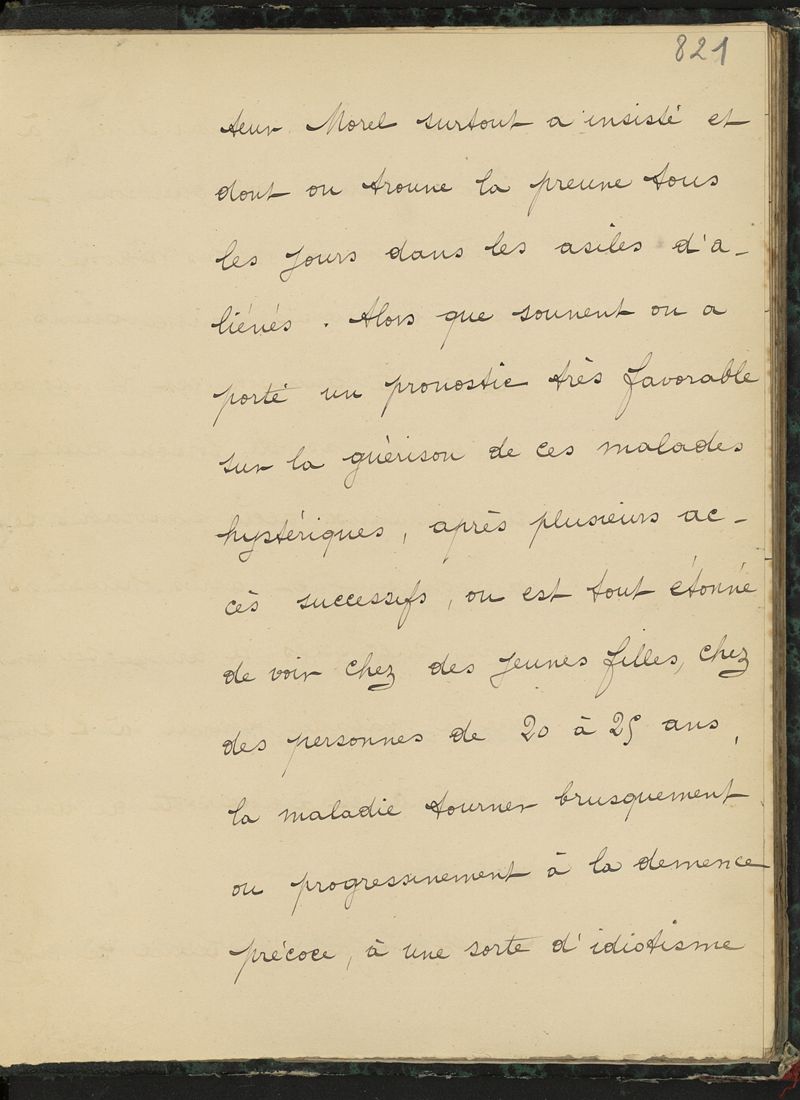 821
teur Morel surtout a insisté et
dont on trouve la preuve tous
les jours dans les asiles d'a-
liénés. Alors que souvent on a
porté un pronostic très favorable
sur la guérison de ces malades
hystériques, après plusieurs ac-
cès successifs, on est tout étonné
de voir chez des jeunes filles, chez
des personnes de 20 à 25 ans,
la maladie tourner brusquement
ou progressivement à la démence
précoce, à une sorte d'idiotisme